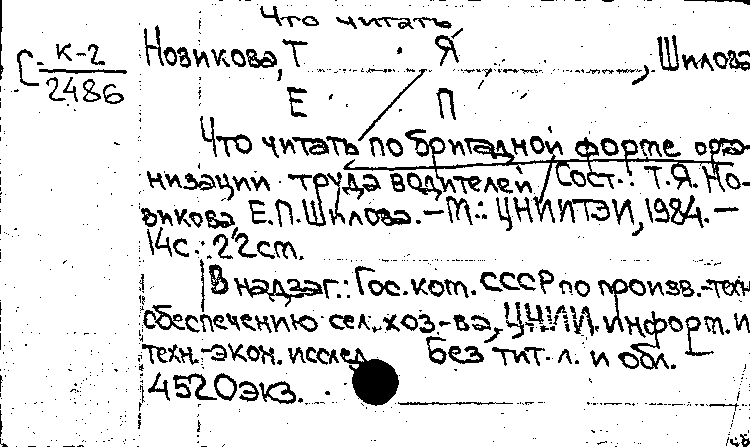 Что читать
С К-2
2486
Новикова, Т Я , Шилова
Е П
Что читать по бригадной форме орга-
низации труда водителей / Сост.: Т.Я. Но-
викова, Е.П. Шилова. – М.: ЦНИИТЭИ, 1984. –
14с.; 22см.
В надзаг.: Гос. ком. СССР по произв.-техн
обеспечению сел. хоз-ва, ЦНИИ информ. и
техн.-экон. исслед Без тит. л. и обл. –
4520экз.